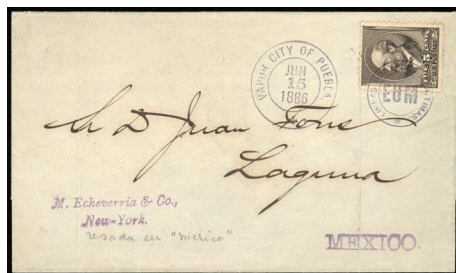 VAPOR CITY OF PUEBLA
JUN
15
1886
EUM
Juan Fons
Laguna
M. Echeverria & Co.,
New-York.
usada en "merico"
MEXICO.